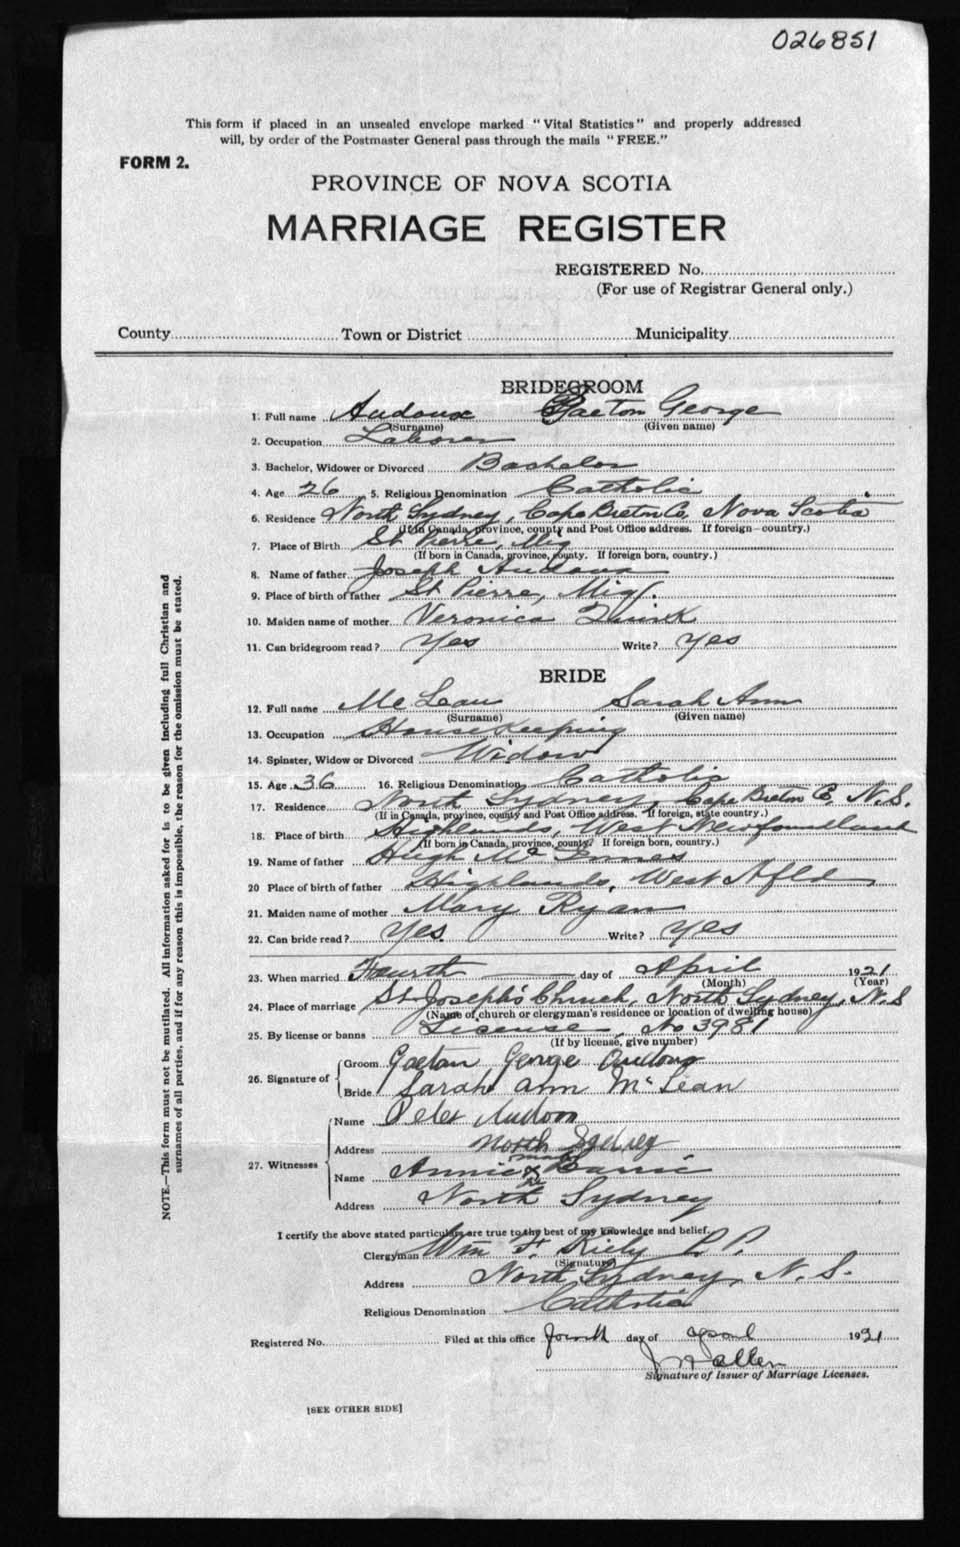 026851
This form if placed in an unsealed envelope marked "Vital Statistics" and properly addressed
will, by order of the Postmaster General pass through the mails "FREE."
FORM 2.
PROVINCE OF NOVA SCOTIA
MARRIAGE REGISTER
REGISTERED No.
(For use of Registrar General only.)
County Town or District Municipality
BRIDEGROOM
1. Full name Audoux Gaeton George
(Surname) (Given name)
2. Occupation Laborer
3. Bachelor, Widower or Divorced Bachelor
4. Age 26 5. Religious Denomination Catholic
6. Residence North Sydney, Cape Breton Co, Nova Scotia
(If in Canada, province, county and Post Office address. If foreign—country.)
7. Place of Birth St Pierre, Miq
(If born in Canada, province, county. If foreign born, country.)
8. Name of father Joseph Audoux
9. Place of birth of father St Pierre, Miq.
10. Maiden name of mother Veronica Quirk
11. Can bridegroom read? Yes Write? Yes
BRIDE
12. Full name McLean Sarah Ann
(Surname) (Given name)
13. Occupation Housekeeping
14. Spinster, Widow or Divorced Widow
15. Age 36 16. Religious Denomination Catholic
17. Residence North Sydney, Cape Breton Co, N.S.
(If in Canada, province, county and Post Office address. If foreign, state country.)
18. Place of birth Highlands, West Newfoundland
(If born in Canada, province, county. If foreign born, country.)
19. Name of father Hugh McInnes
20 Place of birth of father Highlands, West Nfld
21. Maiden name of mother Mary Ryan
22. Can bride read? Yes. Write? Yes
23. When married Fourth day of April 1921
(Month) (Year)
24. Place of marriage St. Joseph's Church, North Sydney, N.S
(Name of church or clergyman's residence or location of dwelling house)
25. By license or banns License, No 3981
(If by license, give number)
26. Signature of Groom Gaetan George Audoux
Bride Sarah Ann McLean
27. Witnesses Name Peter Audoux
Address North Sydney
Name Annie x
North Sydney
Address
I certify the above stated particulars are true to the best of my knowledge and belief.
Clergyman Wm F. Kiely P.P.
(Signature)
Address North Sydney, N.S.
Religious Denomination Catholic
Registered No. Filed at this office fourth day of april 1921
Allen
Signature of Issuer of Marriage Licenses.
[SEE OTHER SIDE]
NOTE.—This form must not be mutilated. All information asked for is to be given including full Christian and
surnames of all parties, and if for any reason this is impossible, the reason for the omission must be stated.